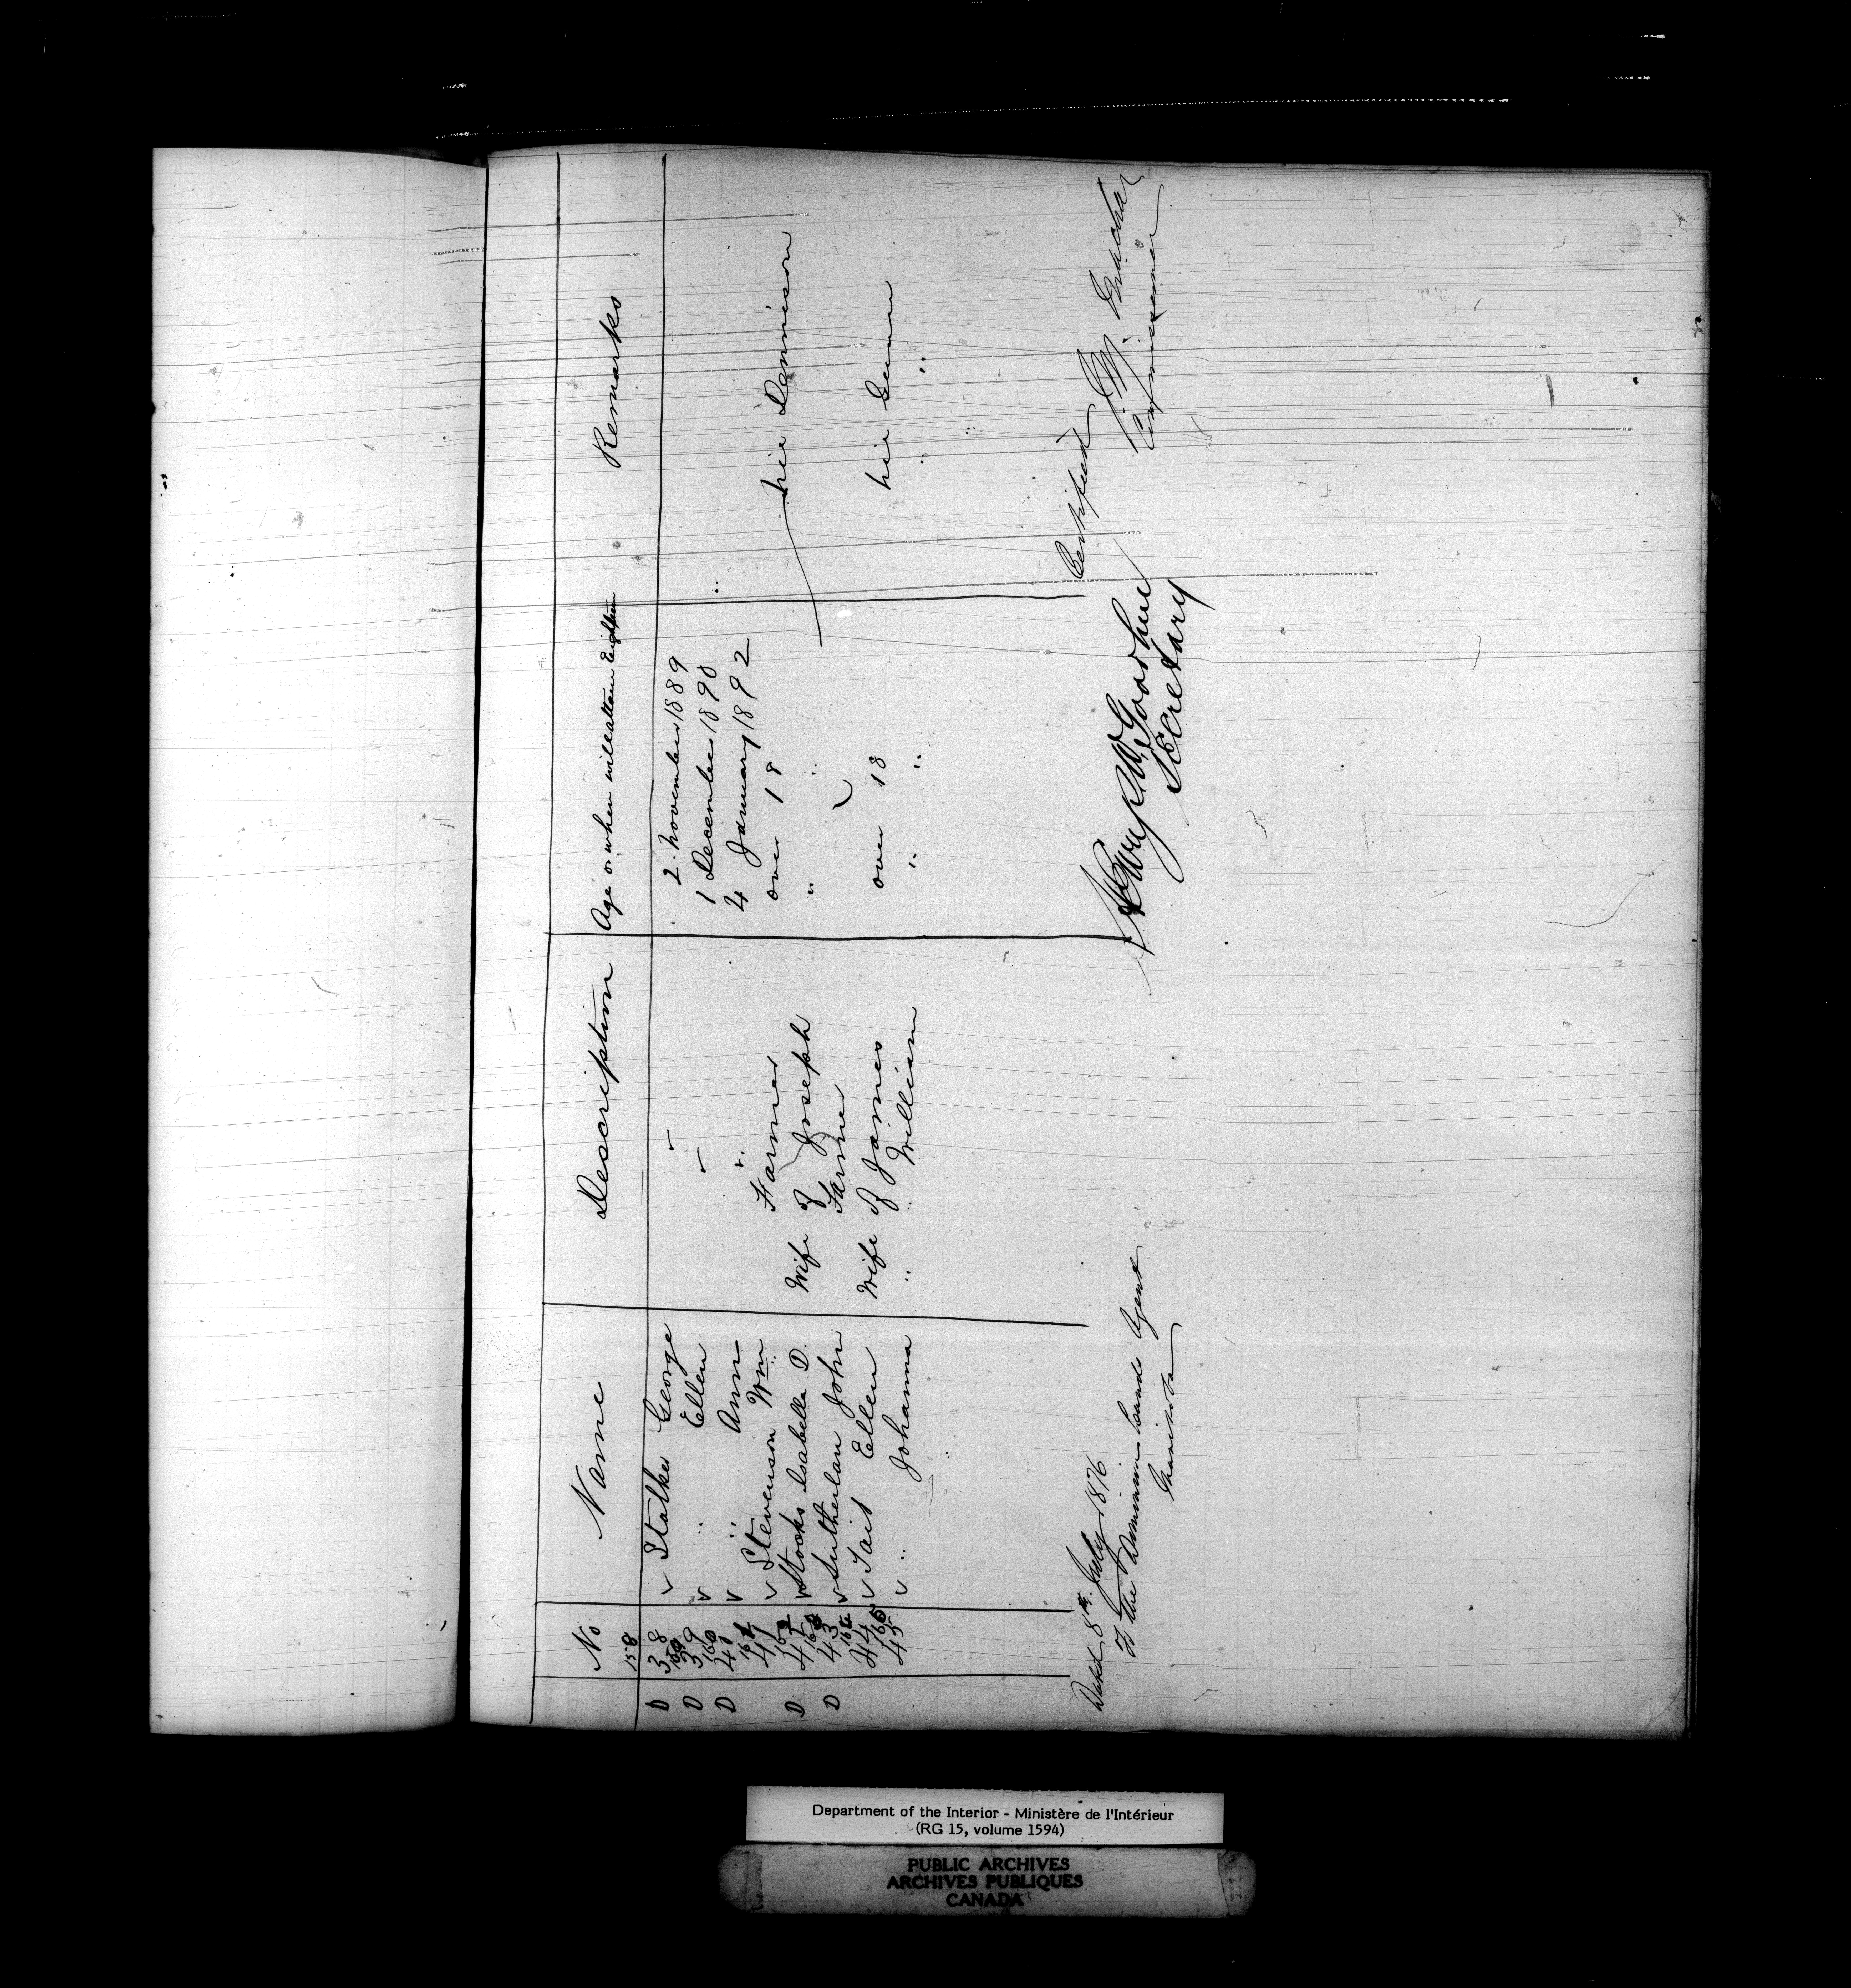 No Name Description Age or when will attain Eighteen Remarks
158
D 38 v Stalker George v 2 November 1889
159
D 39 v " Ellen v 1 December 1890
160
D 40 v " Ann v 4 January 1892
161
41 v Stevenson Wm Farmer over 18
162
D 42 v Stocks Isabella D. Wife of Joseph " " née Dennison
163
D 43 v Sutherlan John Farmer
164
44 v Tait Ellen Wife of James over 18 née Gunn
165
45 v " Johanna " " William " " " "
Dated 8th July 1876
To the Dominion Lands Agent
Manitoba
Secretary
Certified
Commissioner
Department of the Interior - Ministère de l'Intérieur
(RG 15, volume 1594)
PUBLIC ARCHIVES
ARCHIVES PUBLIQUES
CANADA